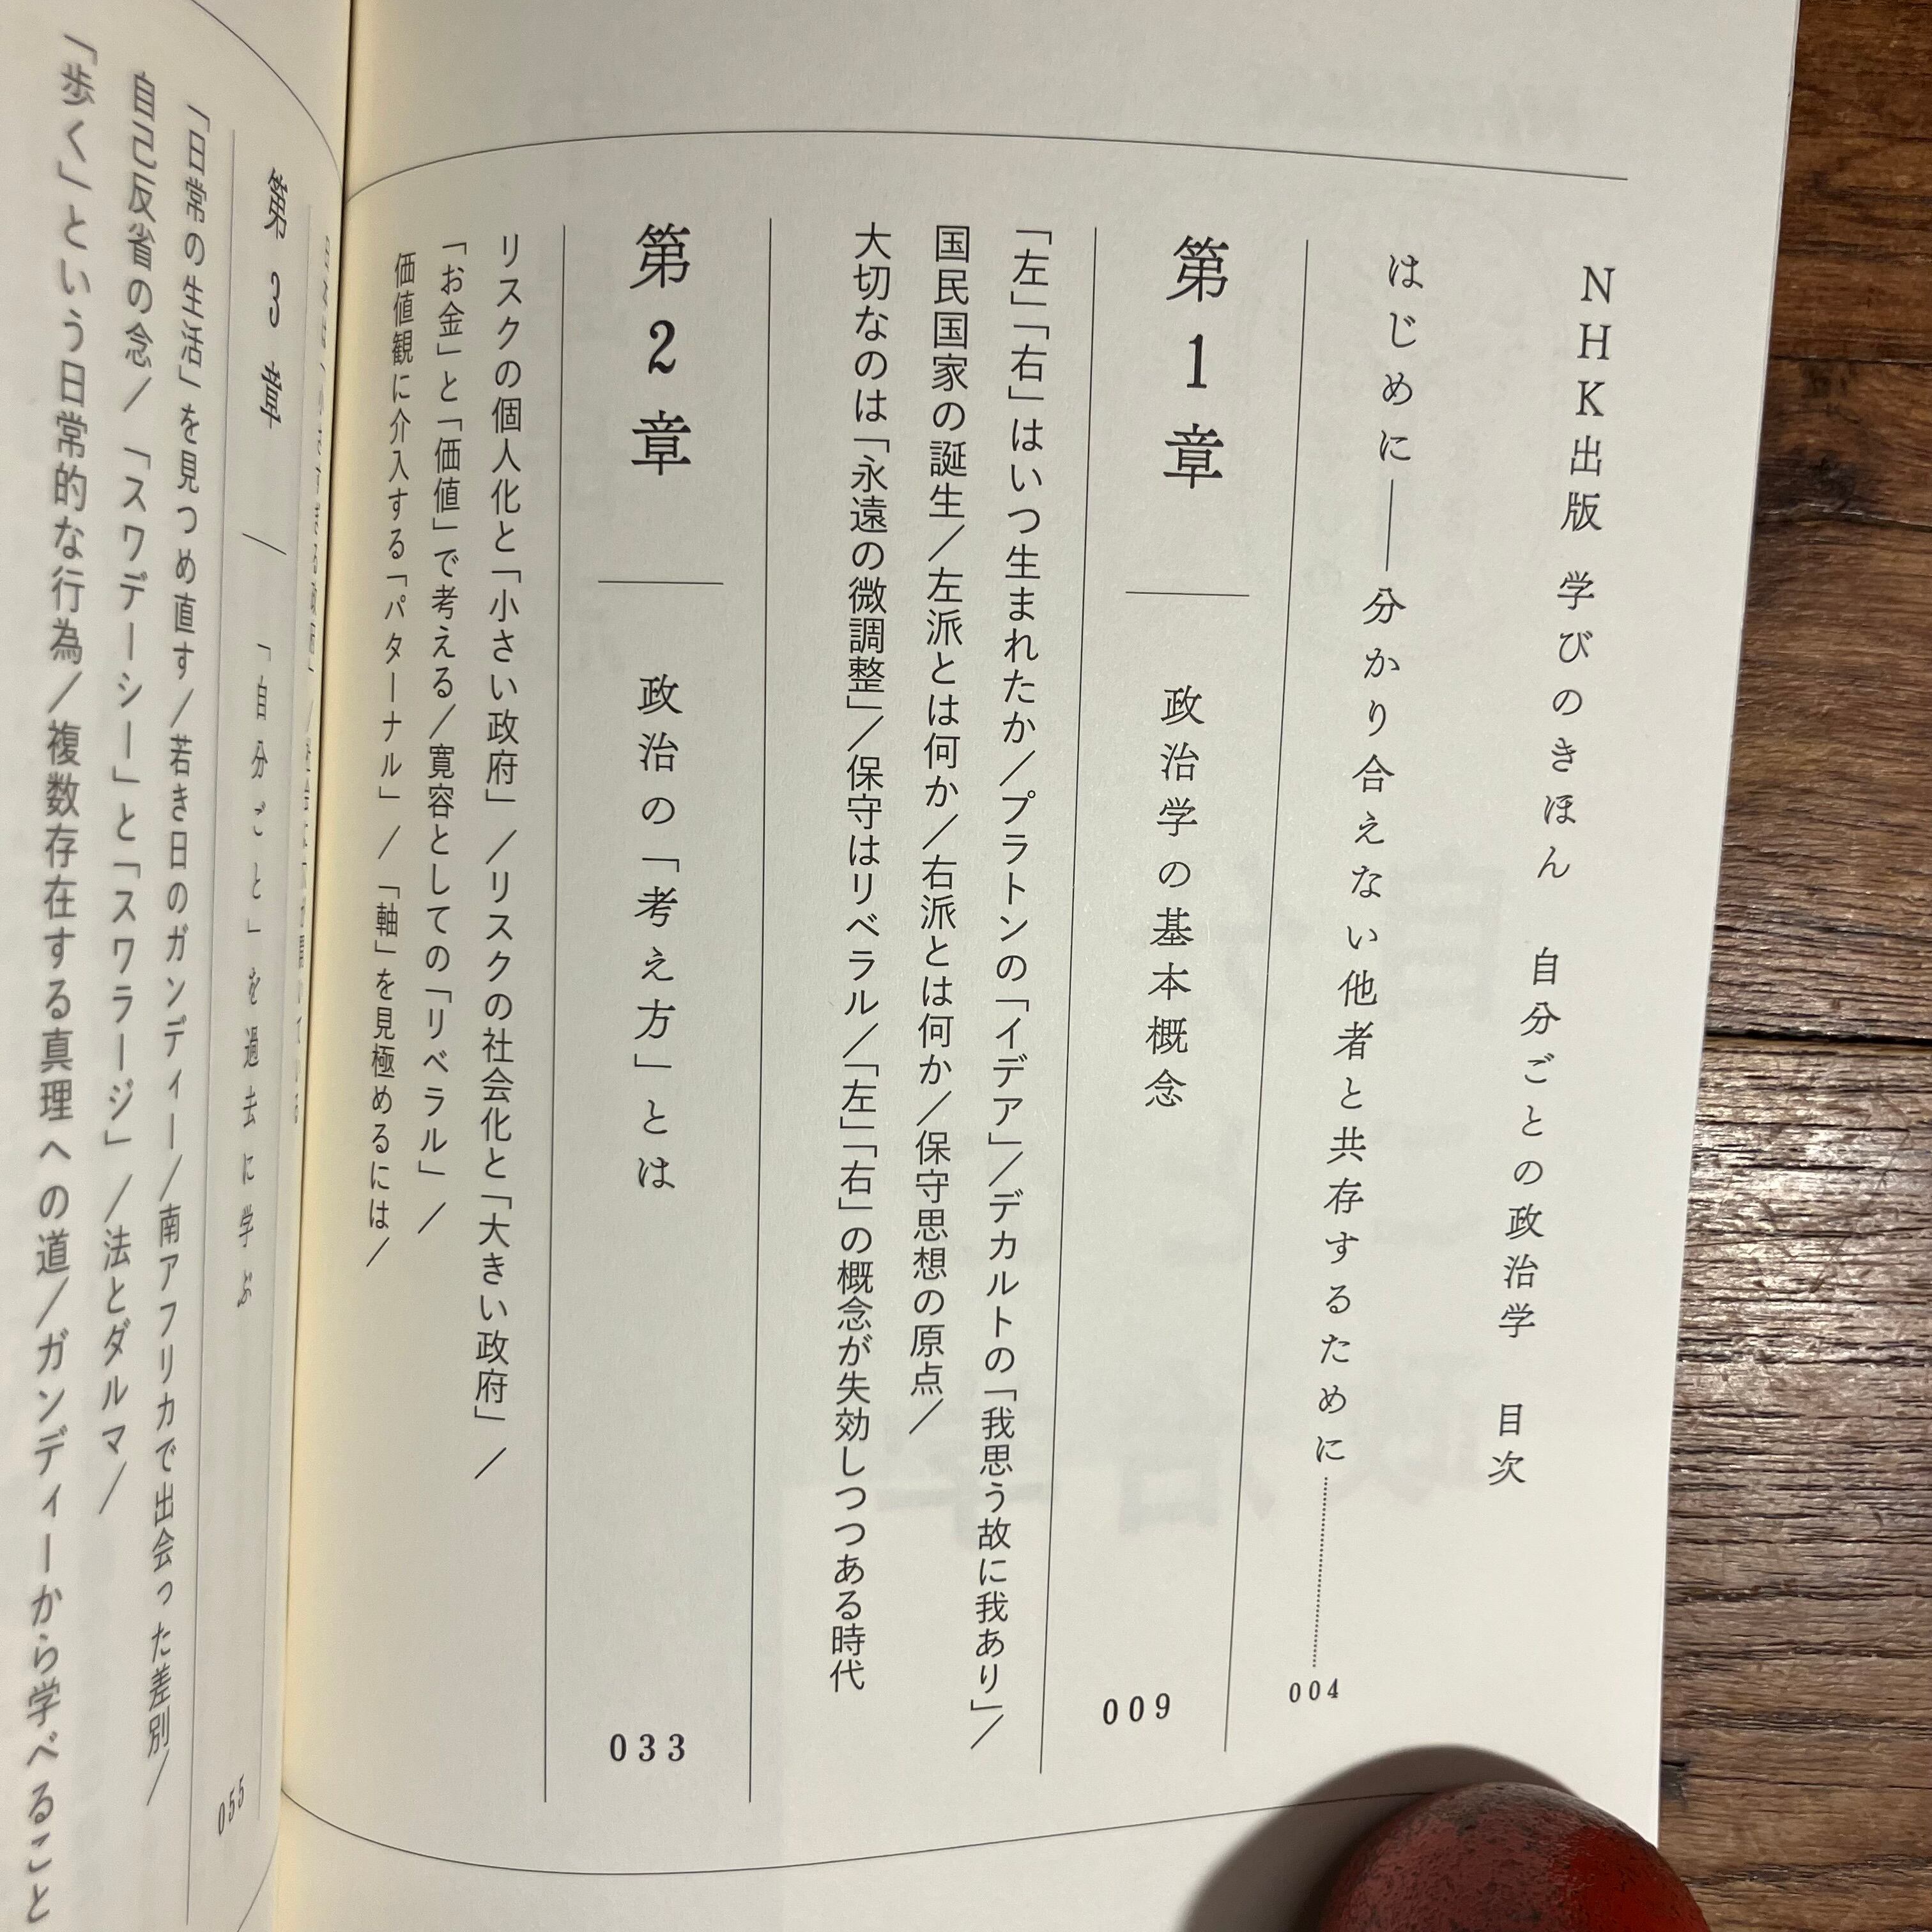 NHK出版 学びのきほん 自分ごとの政治学 目次
はじめに――分かり合えない他者と共存するために……004
第1章 ― 政治学の基本概念 009
「左」「右」はいつ生まれたか／プラトンの「イデア」／デカルトの「我思う故に我あり」／
国民国家の誕生／左派とは何か／右派とは何か／保守思想の原点／
大切なのは「永遠の微調整」／保守はリベラル／「左」「右」の概念が失効しつつある時代
第2章 ― 政治の「考え方」とは 033
リスクの個人化と「小さい政府」／リスクの社会化と「大きい政府」／
「お金」と「価値」で考える／寛容としての「リベラル」／
価値観に介入する「パターナル」／「軸」を見極めるには／
第3章 ― 「自分ごと」を過去に学ぶ 055
「日常の生活」を見つめ直す／若き日のガンディー／南アフリカで出会った差別／
自己反省の念／「スワデーシー」と「スワラージ」／法とダルマ／
「歩く」という日常的な行為／複数存在する真理への道／ガンディーから学べること